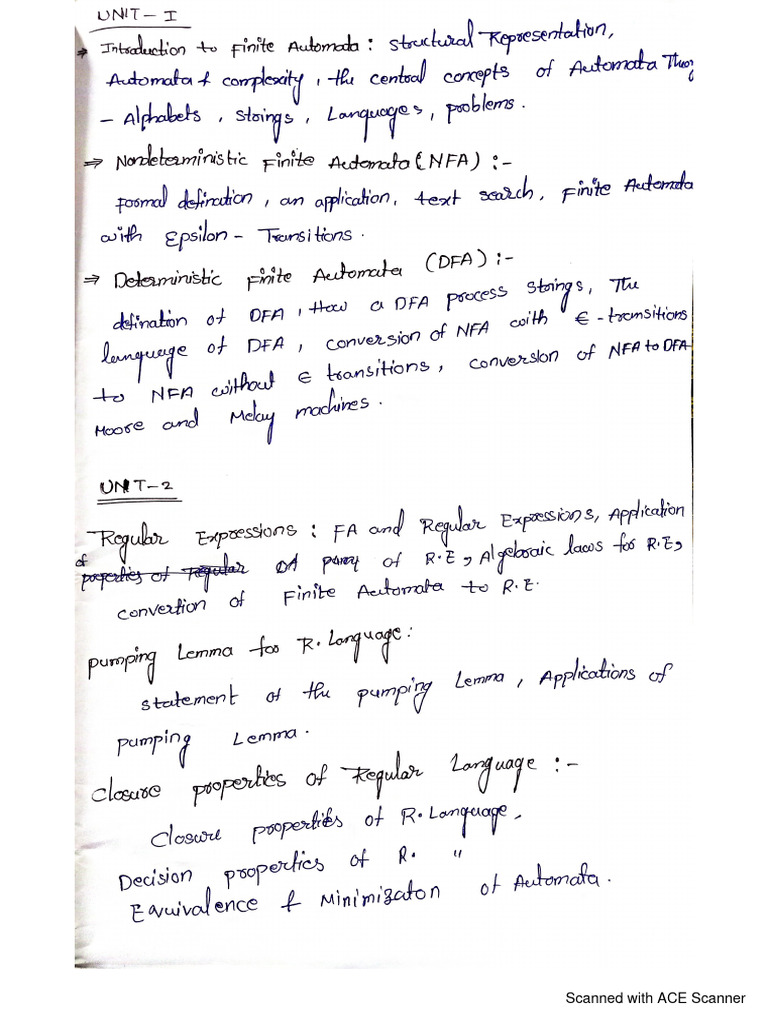 UNIT-I
→ Introduction to Finite Automata: Structural Representation,
Automata & complexity, the central concepts of Automata Theory
- Alphabets, Strings, Languages, problems.
⇒ Nondeterministic Finite Automata (NFA) :-
Formal defination, an application, text search, Finite Automata
with Epsilon - Transitions.
⇒ Deterministic Finite Automata (DFA) :-
defination of DFA, How a DFA process Strings, The
language of DFA, conversion of NFA with ∈-transitions
to NFA without ∈ transitions, conversion of NFA to DFA
Moore and Melay machines.
UNIT-2
Regular Expressions: FA and Regular Expressions, Application
of
properties of Regular of R.E, Algebraic laws for R.E,
convertion of Finite Automata to R.E.
pumping Lemma for R. Language:
statement of the pumping Lemma, Applications of
pumping Lemma.
Closure properties of Regular Language :-
Closure properties of R. Language,
Decision properties of R. "
Equivalence & Minimizaton of Automata.
Scanned with ACE Scanner